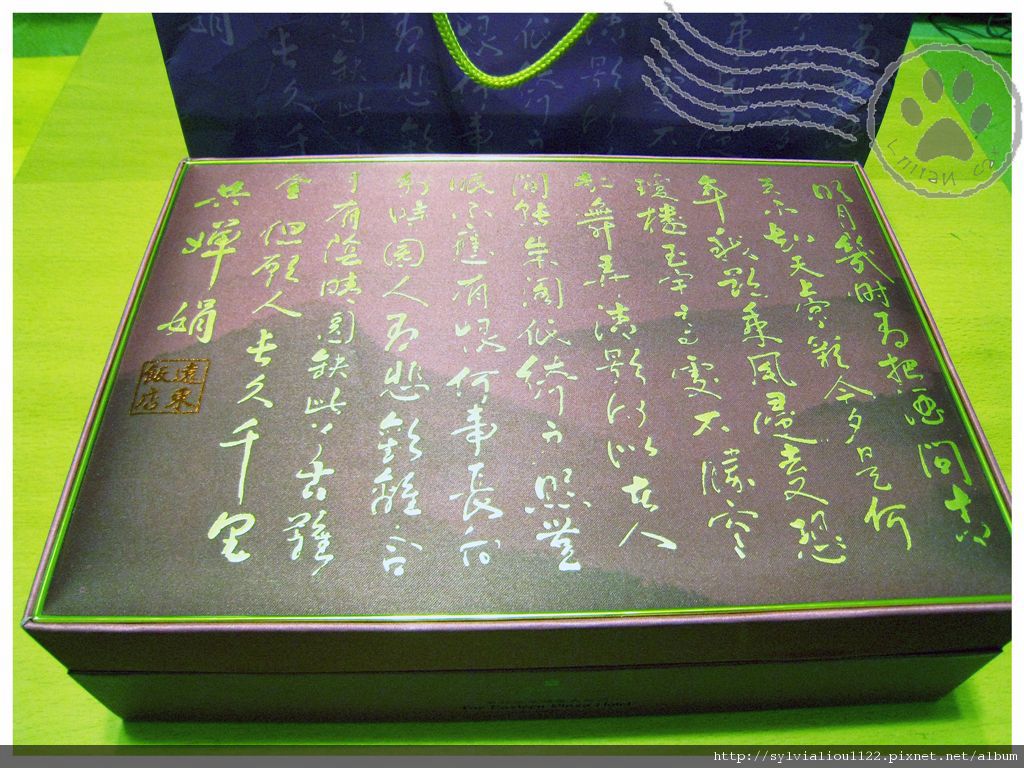 明月幾时有把酒問青
天不知天上宮闕今夕是何
年我欲乘風歸去又恐
瓊樓玉宇高處不勝寒
起舞弄清影何似在人
間轉朱閣低綺戶照無
眠不應有恨何事長向
別時圓人有悲歡離合
月有陰晴圓缺此事古難
全但願人長久千里
共嬋娟
遠東
飯店
Far Eastern Plaza Hotel
http://sylvialiou1122.pixnet.net/album